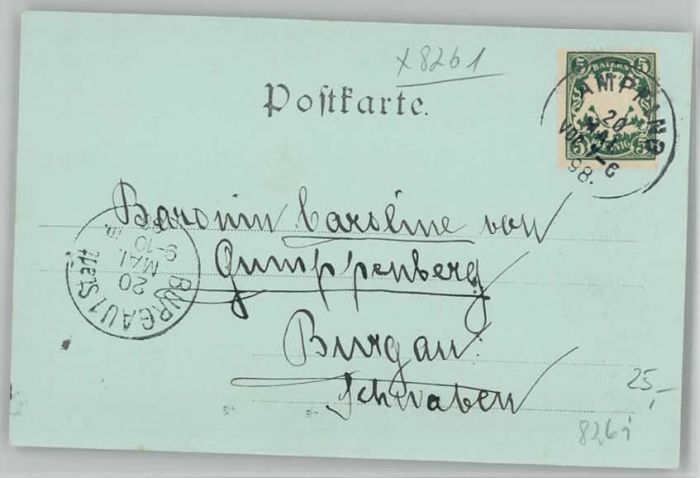 x8261
Postkarte.
BAYERN
5 5
5 PFENNIG 5
AMPFING
20
MAI
VOR
98.
Baronin Caroline von
Gumppenberg
Burgau.
Schwaben
BURGAU 1 Stadt
20
MAI
9-10
25,-
8261